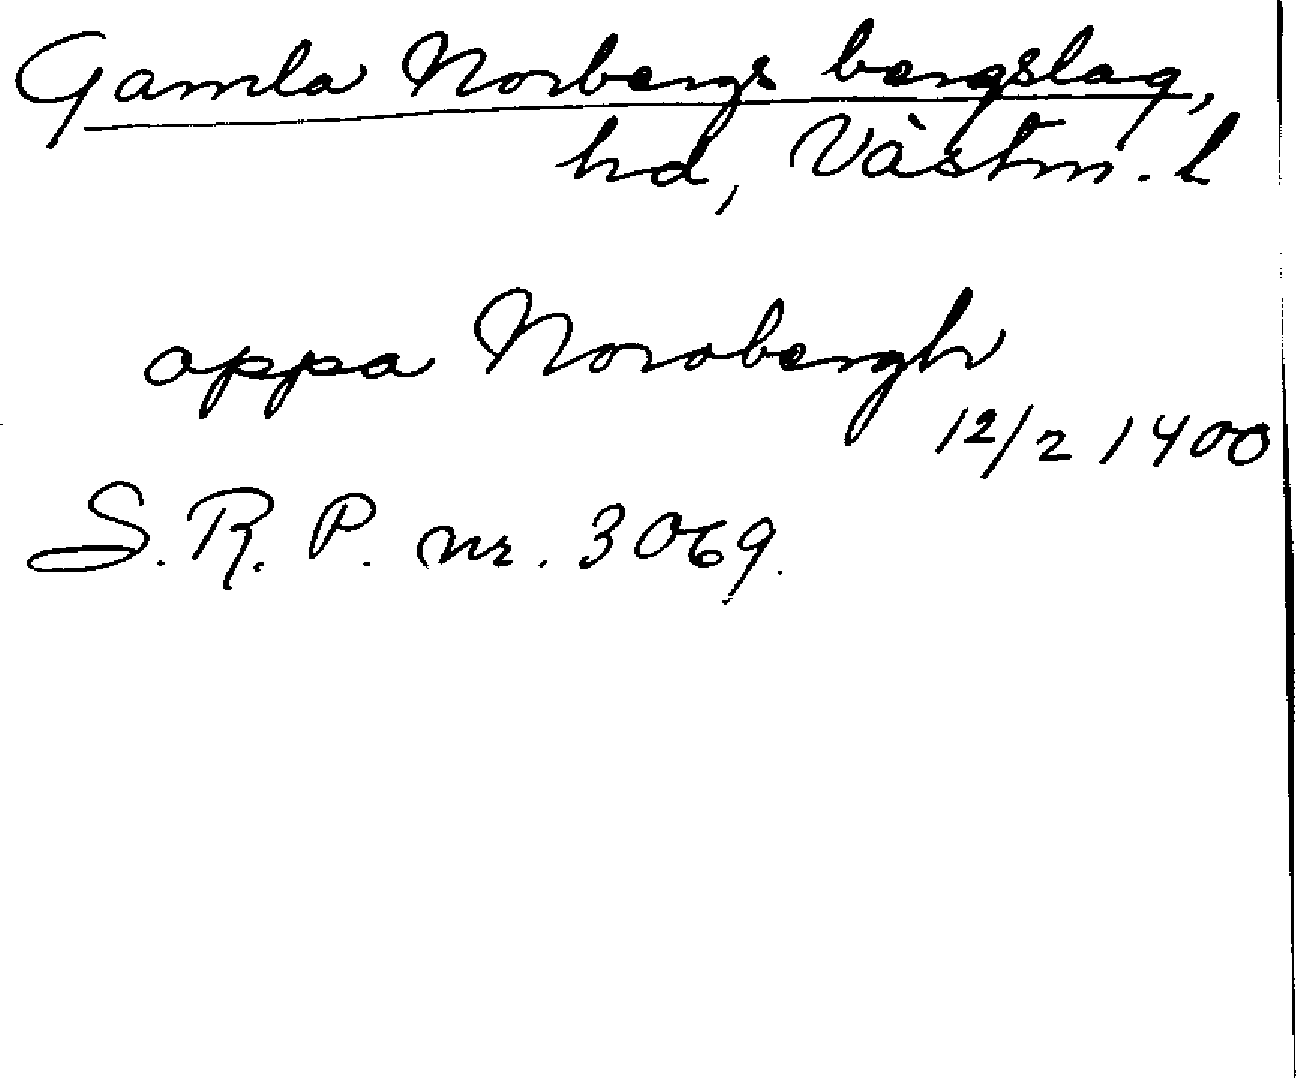 Gamla Norbergs bergslag,
hd, Västm. l
oppa Norobergh
12/2 1400
S. R. P. nr. 3069.